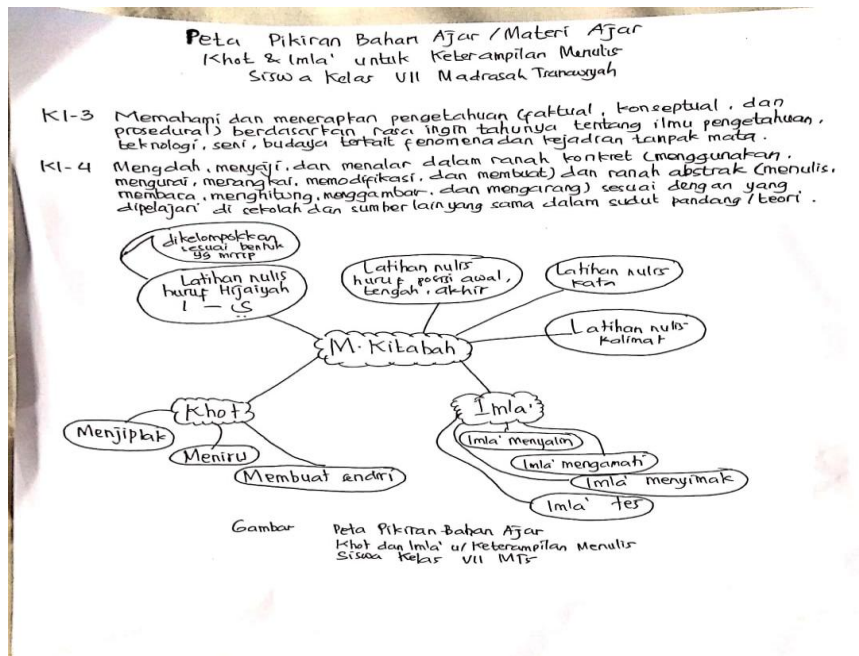 Peta Pikiran Bahan Ajar / Materi Ajar
Khot & Imla' untuk Keterampilan Menulis
Siswa Kelas VII Madrasah Tsanawiyah
KI-3 Memahami dan menerapkan pengetahuan (faktual, konseptual, dan
prosedural) berdasarkan rasa ingin tahunya tentang ilmu pengetahuan,
teknologi, seni, budaya terkait fenomena dan kejadian tampak mata.
KI-4 Mengolah, menyaji, dan menalar dalam ranah konkret (menggunakan,
mengurai, merangkai, memodifikasi, dan membuat) dan ranah abstrak (menulis,
membaca, menghitung, menggambar, dan mengarang) sesuai dengan yang
dipelajari di sekolah dan sumber lain yang sama dalam sudut pandang / teori.
dikelompokkan
sesuai bentuk
yg mirip
Latihan nulis
huruf Hijaiyah
ا - ي
Latihan nulis
huruf posisi awal,
tengah, akhir
Latihan nulis
kata
Latihan nulis
kalimat
M. Kitabah
Khot
Menjiplak
Meniru
Membuat sendiri
Imla'
Imla' menyalin
Imla' mengamati
Imla' menyimak
Imla' tes
Gambar Peta Pikiran Bahan Ajar
Khot dan Imla' u/ Keterampilan Menulis
Siswa Kelas VII MTs